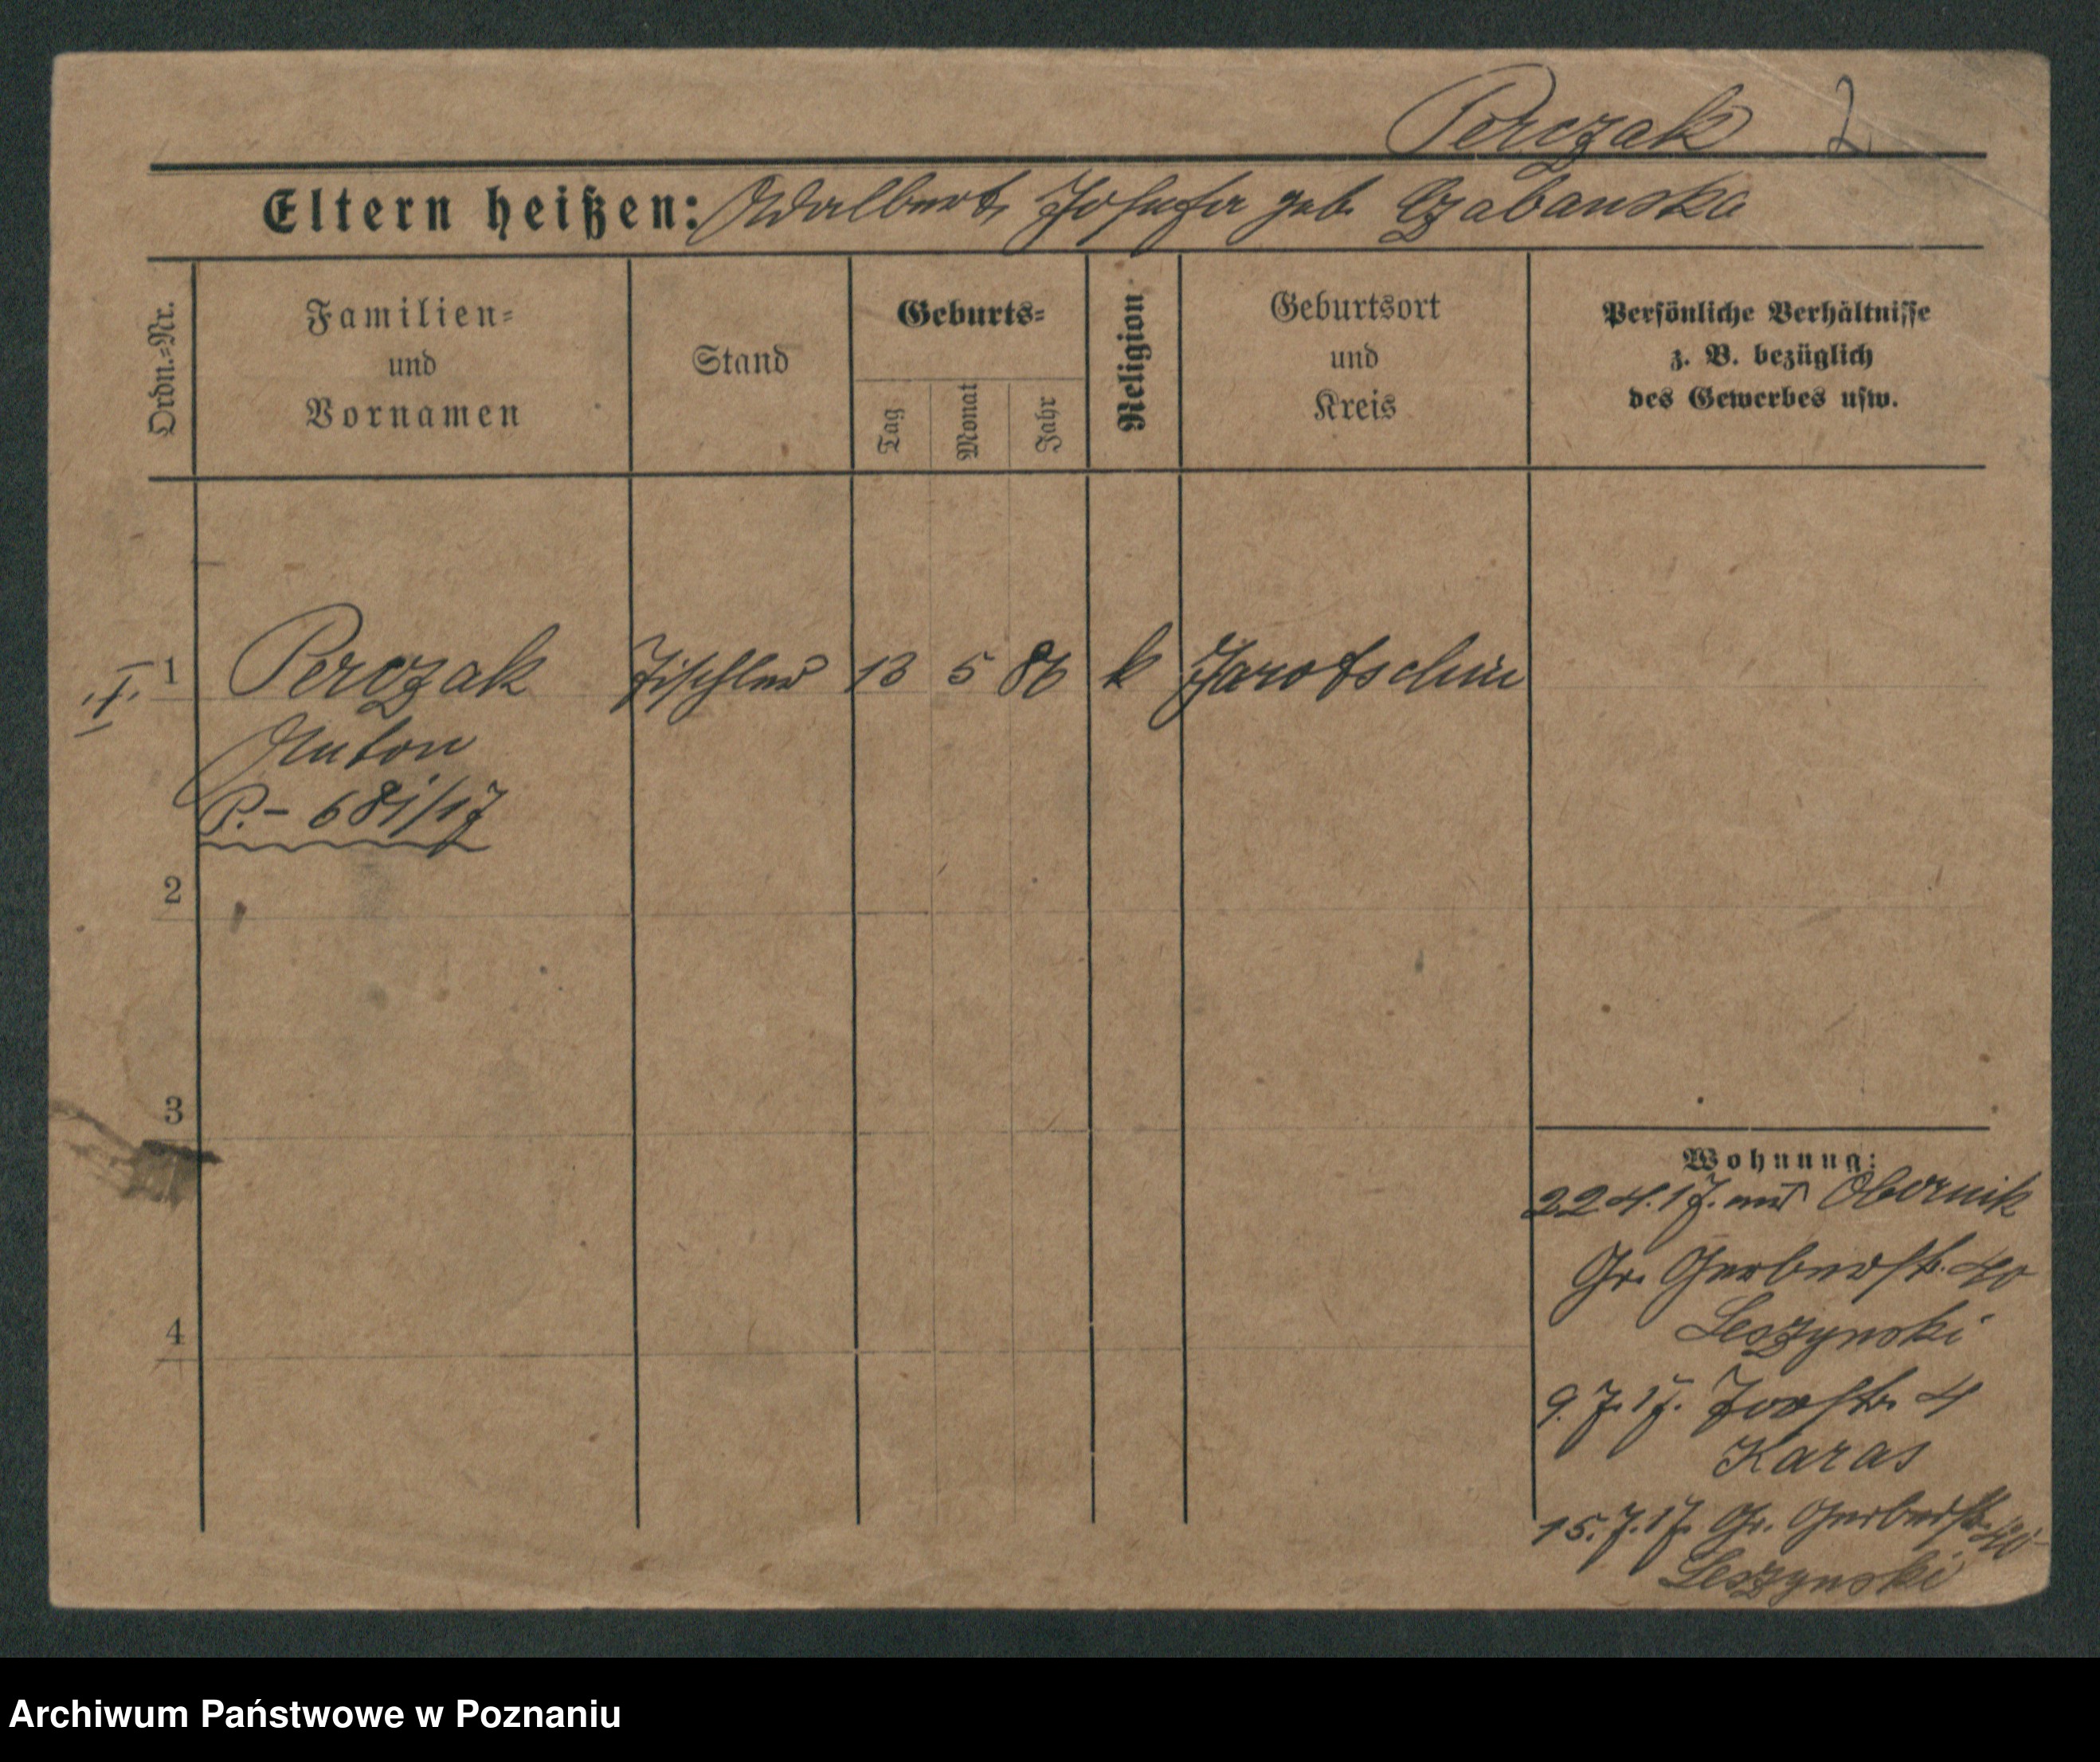 Perczak 2
Eltern heißen: Adalbert, Josefa geb. Czabanska
Ordn.=Nr.
Familien=
und
Vornamen
Stand
Geburts=
Tag
Monat
Jahr
Religion
Geburtsort
und
Kreis
Persönliche Verhältnisse
z. B. bezüglich
des Gewerbes usw.
1 Perczak Tischler 13 5 86 k Jarotschin
Anton
P.- 681/17
2
3
4
Wohnung:
22.4.17. aus Obornik
Gr. Gerberstr. 40
Leszynski
9.7.17. Torstr. 4
Karas
15.7.17. Gr. Gerberstr. 40
Leszynski
Archiwum Państwowe w Poznaniu